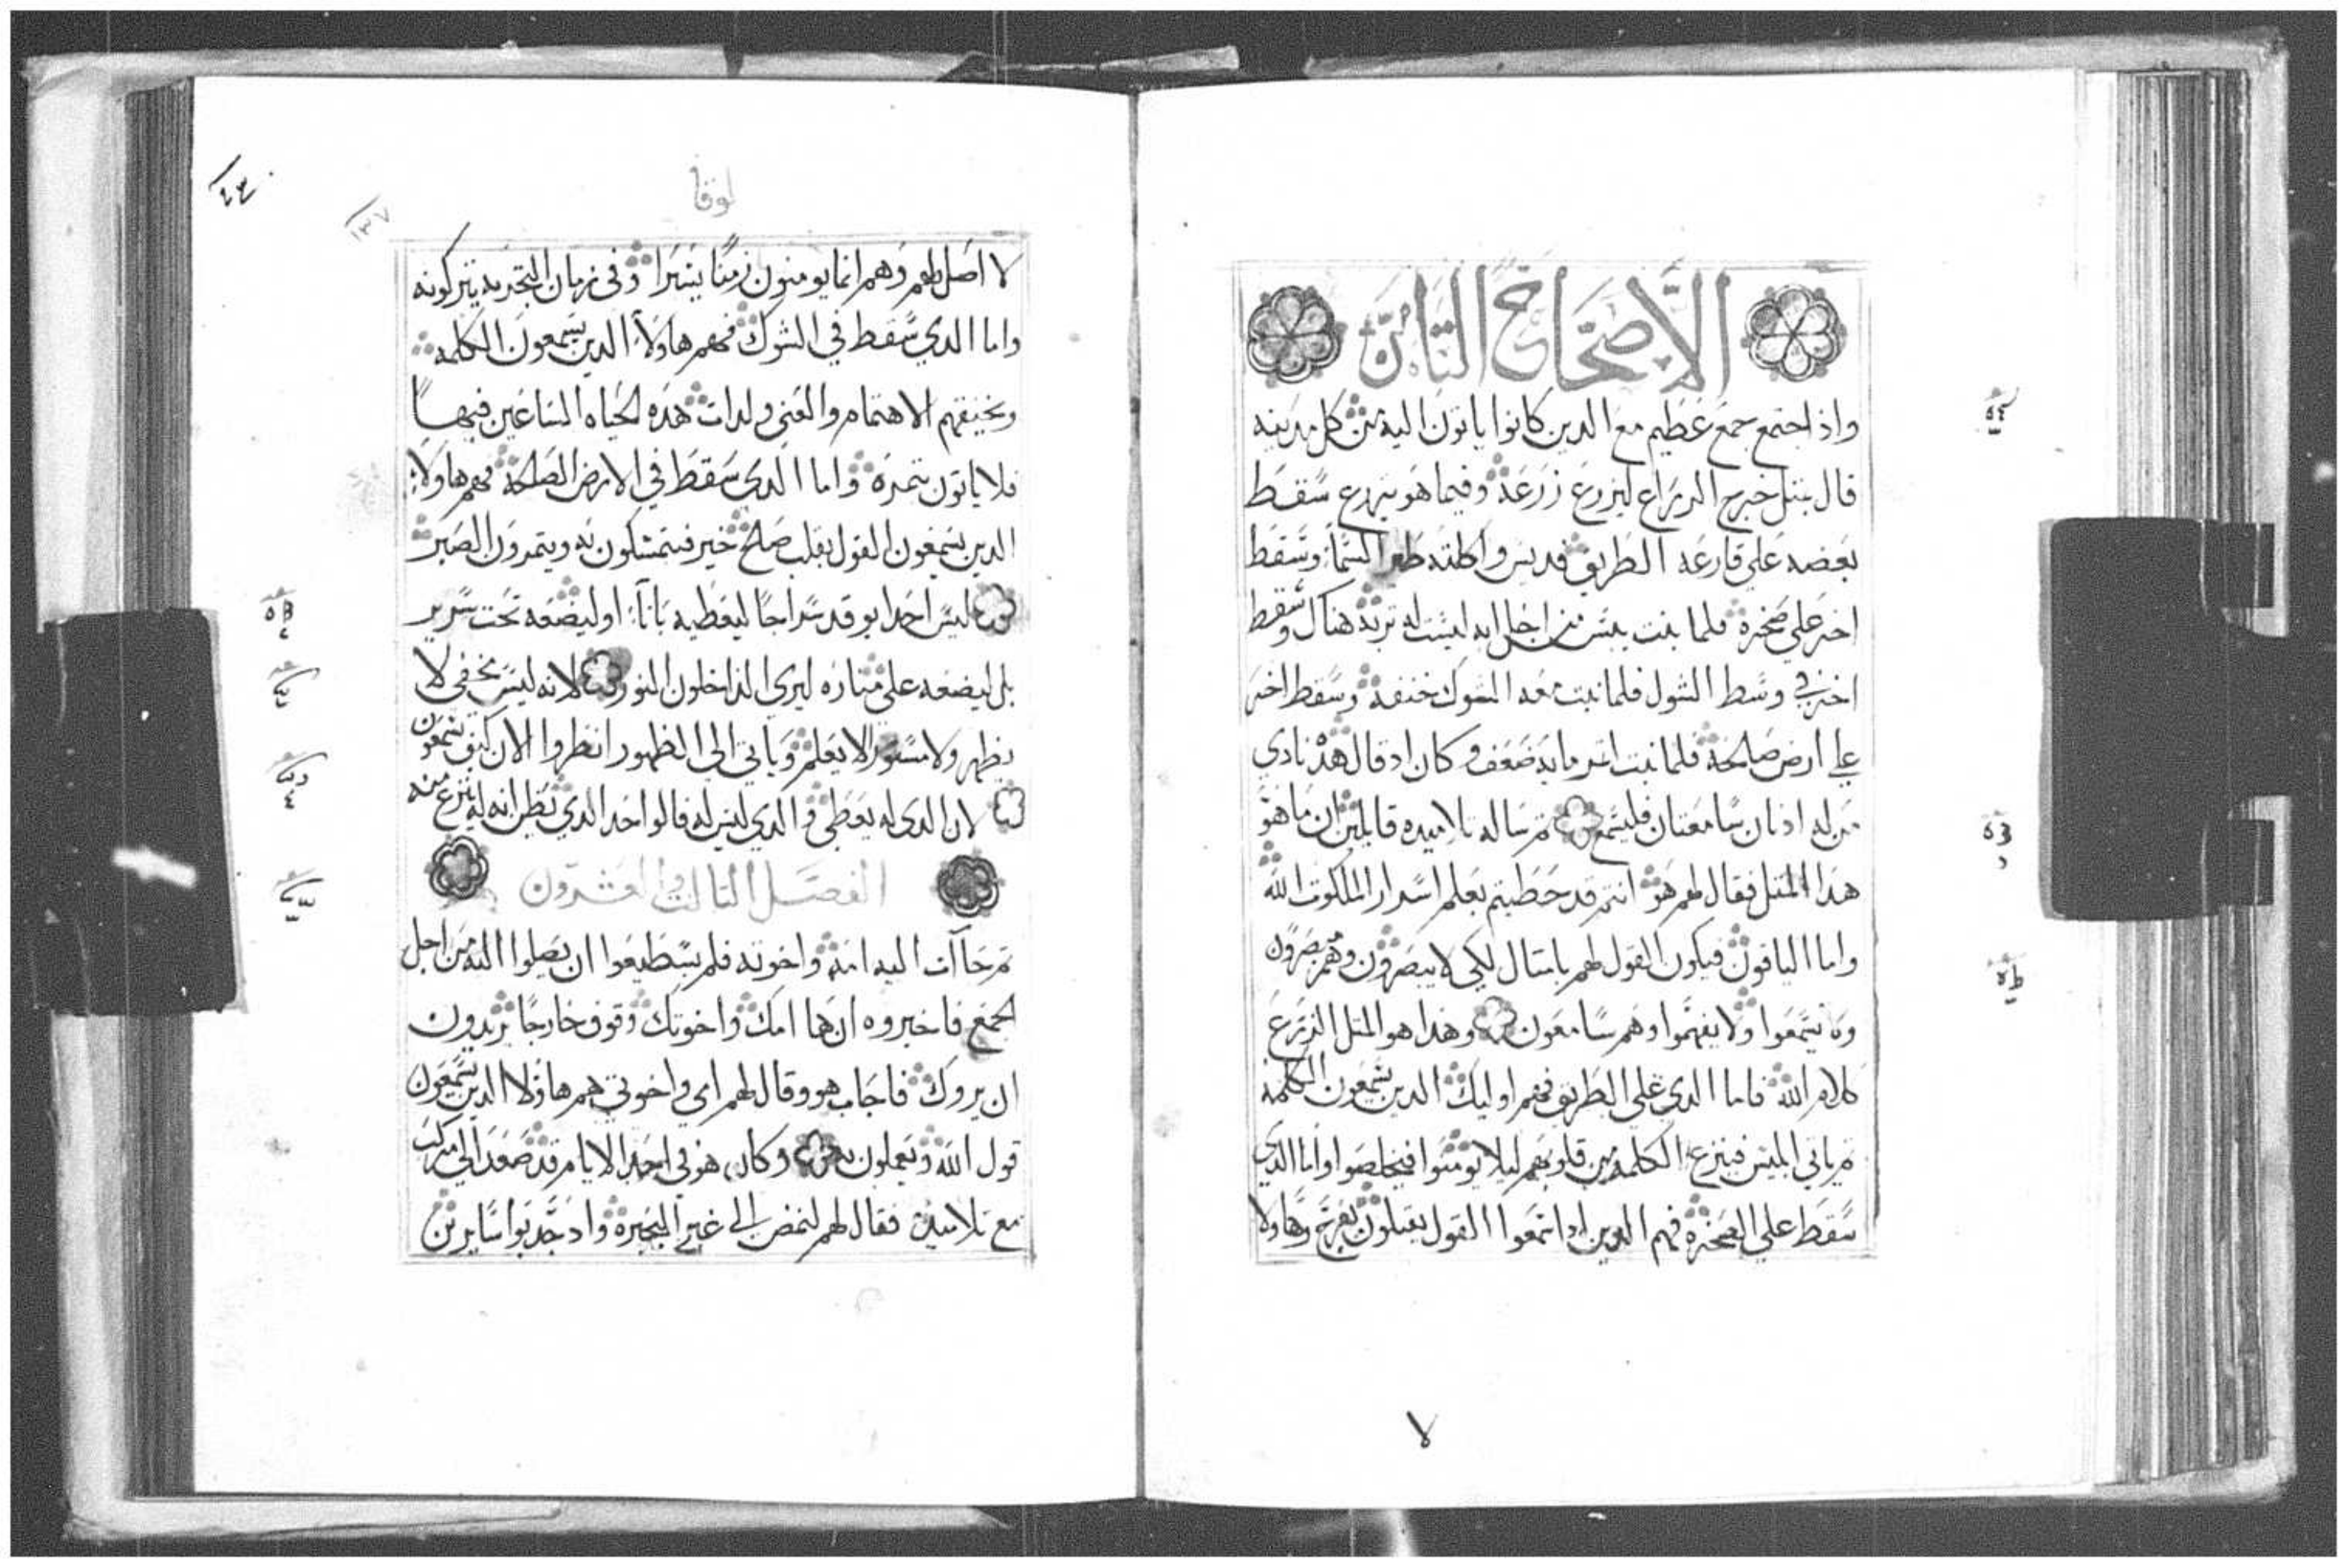 الاصحاح الثامن
واذ اجتمع جمع عظيم مع الدين كانوا ياتون اليه من كل مدينه
قال بمثل خرج الزراع ليزرع زرعه وفيما هو يزرع سقط
بعضه علي قارعه الطريق فديس واكلته طير السما وسقط
اخر علي صخرة فلما نبت يبس من اجل انه ليست له تربة هناك وسقط
اخر في وسط الشوك فلما نبت معه الشوك خنقه وسقط اخر
علي ارض صالحه فلما نبت اثمر مايه ضعف وكان اد قال هدا نادي
من له ادنان سامعتان فليسمع ثم ساله تلاميده قايلين ان ما هو
هدا المثل فقال لهم هو انتم قد حظيتم بعلم اسرار الملكوت الله
واما الباقون فيكون القول لهم بامثال لكي لا يبصرون وهم يبصرون
ولا يسمعوا ولا يفهموا وهم سامعون وهدا هو المثل الزرع
كلام الله فاما الدي علي الطريق فهم اوليك الدين يسمعون الكلمة
ثم ياتي ابليس فينزع الكلمة من قلوبهم ليلا يومنوا فيخلصوا واما الدي
سقط علي الصخره فهم الدين ادا سمعوا القول يقبلون بفرح وهاولا
لا
لوقا
٤٣
١٣٧
لا اصل لهم وهم انما يومنون زمنا يسيرا وفي زمان التجربه يتركونه
واما الدي سقط في الشوك فهم هاولاء الدين يسمعون الكلمه
ويخنقهم الاهتمام والغني ولدات هده الحياه الساعين فيها
فلا ياتون بتمرة واما الدي سقط في الارض الصالحة فهم هاولاء
الدين يسمعون القول بقلب صالح خير فيتمسكون به ويتمرون الصبر
ليس احد ايوقد سراجا ليغطيه باناء اوليضعه تحت سرير
بل ليضعه علي مناره ليري الداخلون النور لانه ليس يخفي لا
يظهر ولا مستور لا يعلم وياتي الي الظهور انظروا الان كيف تسمعون
لان الدي له يعطي والدي ليس له فالواحد الدي يظن انه له ينزع منه
الفصل الثالث والعشرون
ثم جاات اليه امه واخوته فلم يسطيعوا ان يصلوا اليه من اجل
الجمع فاخبروه ان ها امك واخوتك وقوف خارجا يريدون
ان يروك فاجاب هو وقال لهم امي واخوتي هم هاولا الدين يسمعون
قول الله ويعملون به وكان هو في احد الايام قد صعد الي مركب
مع تلاميده فقال لهم لنمض الي عبر البحيره واد جدبوا سايرين